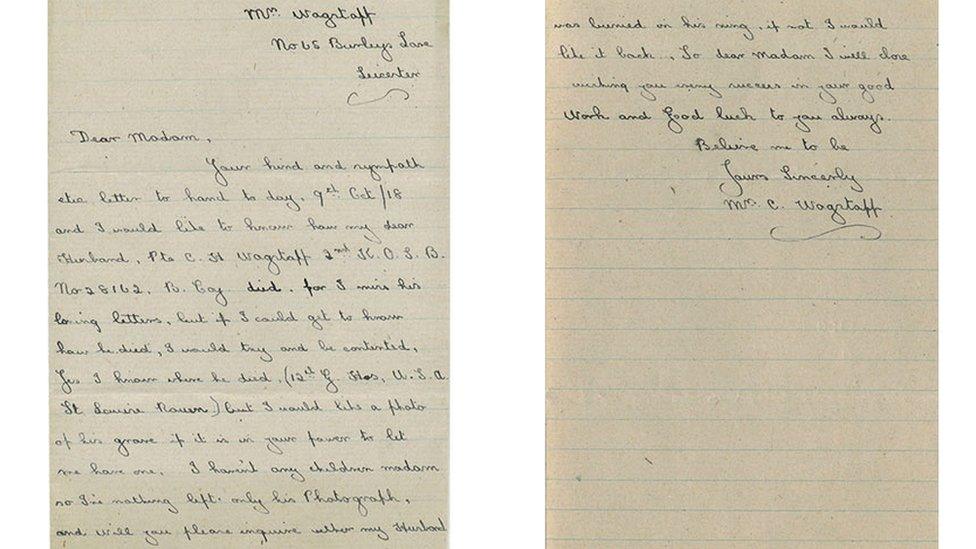 Mrs Wagstaff
No 65 Burleys Lane
Leicester
Dear Madam,
Your kind and sympath
etic letter to hand to day, 9th Oct/18
and I would like to know how my dear
Husband, Pte C. H Wagstaff 2nd K. O. S. B.
No 28162. B. Coy died. for I miss his
loving letters, but if I could get to know
how he died, I would try and be contented,
Yes I know where he died, (12th G. Hos, U. S. A.
St Louise Rouen) but I would like a photo
of his grave if it is in your power to let
me have one. I haven't any children madam
so I've nothing left only his Photograph,
and will you please inquire wether my Husband
was buried on his ring, if not I would
like it back, So dear Madam I will close
wishing you every success in your good
work and Good luck to you always.
Believe me to be
Yours Sincerly
Mrs C. Wagstaff